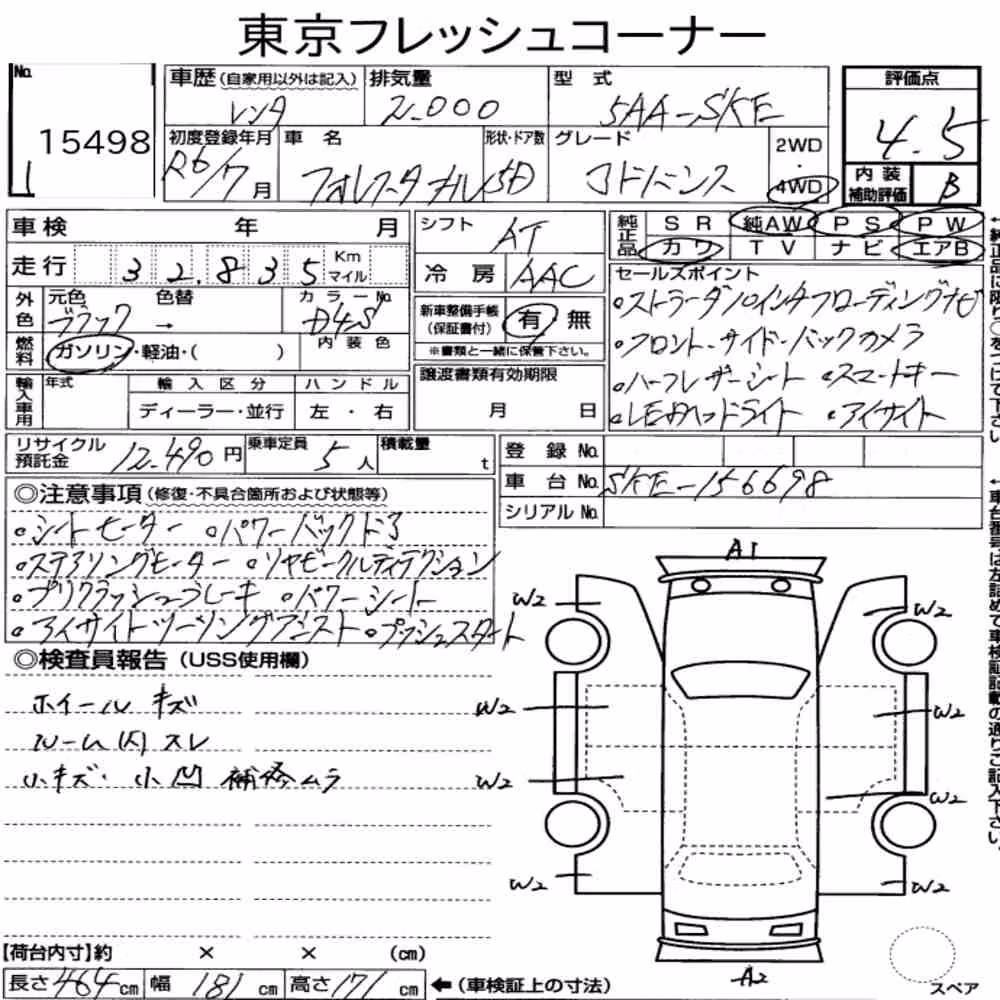 東京フレッシュコーナー
No.
15498
1
車歴 (自家用以外は記入) 排気量 型 式 評価点
レンタ 2.000 5AA-SKE 4.5
初度登録年月 車 名 形状・ドア数 グレード 2WD
・
R6/7月 フォレスターナル 5D アドバンス 4WD
内装補助評価 B
車検 年 月 シフト AT
純正品 SR 純AW PS PW
カワ TV ナビ エアB
走行 32.835 Km マイル 冷房 AAC
外色 元色 色替 カラーNo.
ブラック → D4S
内装色
新車整備手帳(保証書付) 有 無
※書類と一緒に保管下さい。
燃料 ガソリン・軽油・( )
輸入車用 年式 輸入区分 ハンドル
ディーラー・並行 左・右
譲渡書類有効期限
月 日
セールスポイント
。ストラーダ10インチフローディングナビ
。フロント、サイド、バックカメラ
。ハーフレザーシート 。スマートキー
。LEDヘッドライト 。アイサイト
リサイクル預託金 12.490円 乗車定員 5人 積載量 t
登録No.
車台No. SKE-156698
シリアルNo.
◎注意事項 (修復・不具合箇所および状態等)
。シートヒーター 。パワーバックドア
。ステアリングヒーター 。リヤビークルディテクション
。プリクラッシュブレーキ 。パワーシート
。アイサイトツーリングアシスト 。プッシュスタート
◎検査員報告 (USS使用欄)
ホイール キズ
ルーム内 スレ
小キズ・小凹 補修ムラ
A1
W2 W2
W2 W2
W2 W2
W2 W2
A2
スペア
【荷台内寸】約 × × (cm)
長さ 464cm 幅 181cm 高さ 171cm ←(車検証上の寸法)
←純正品に限り○をつけて下さい
←車台番号は左詰めで車検証記載の通りご記入下さい。